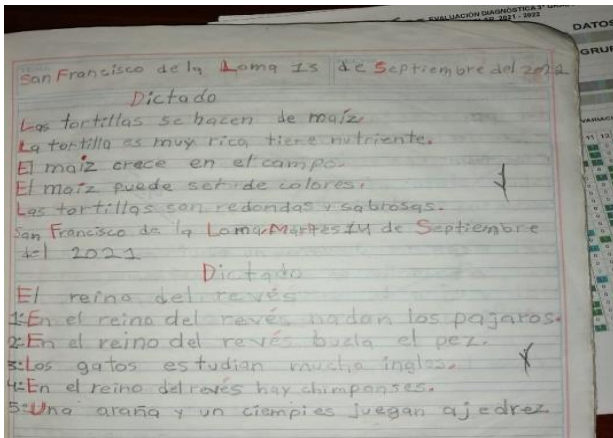 EVALUACIÓN DIAGNÓSTICA 3°
2021 - 2022
DATOS
GRU
San Francisco de la Loma 13 de Septiembre del 2022
Dictado
Las tortillas se hacen de maíz.
La tortilla es muy rica tiene nutriente.
El maíz crece en el campo.
El maíz puede ser de colores.
Las tortillas son redondas y sabrosas.
San Francisco de la Loma Martes 14 de Septiembre
del 2021
Dictado
El reino del revés
1:En el reino del revés nadan los pajaros.
2:En el reino del revés buela el pez.
3:Los gatos estudian mucho ingles.
4:En el reino del revés hay chimponses.
5:Una araña y un ciempies juegan ajedrez
11 12